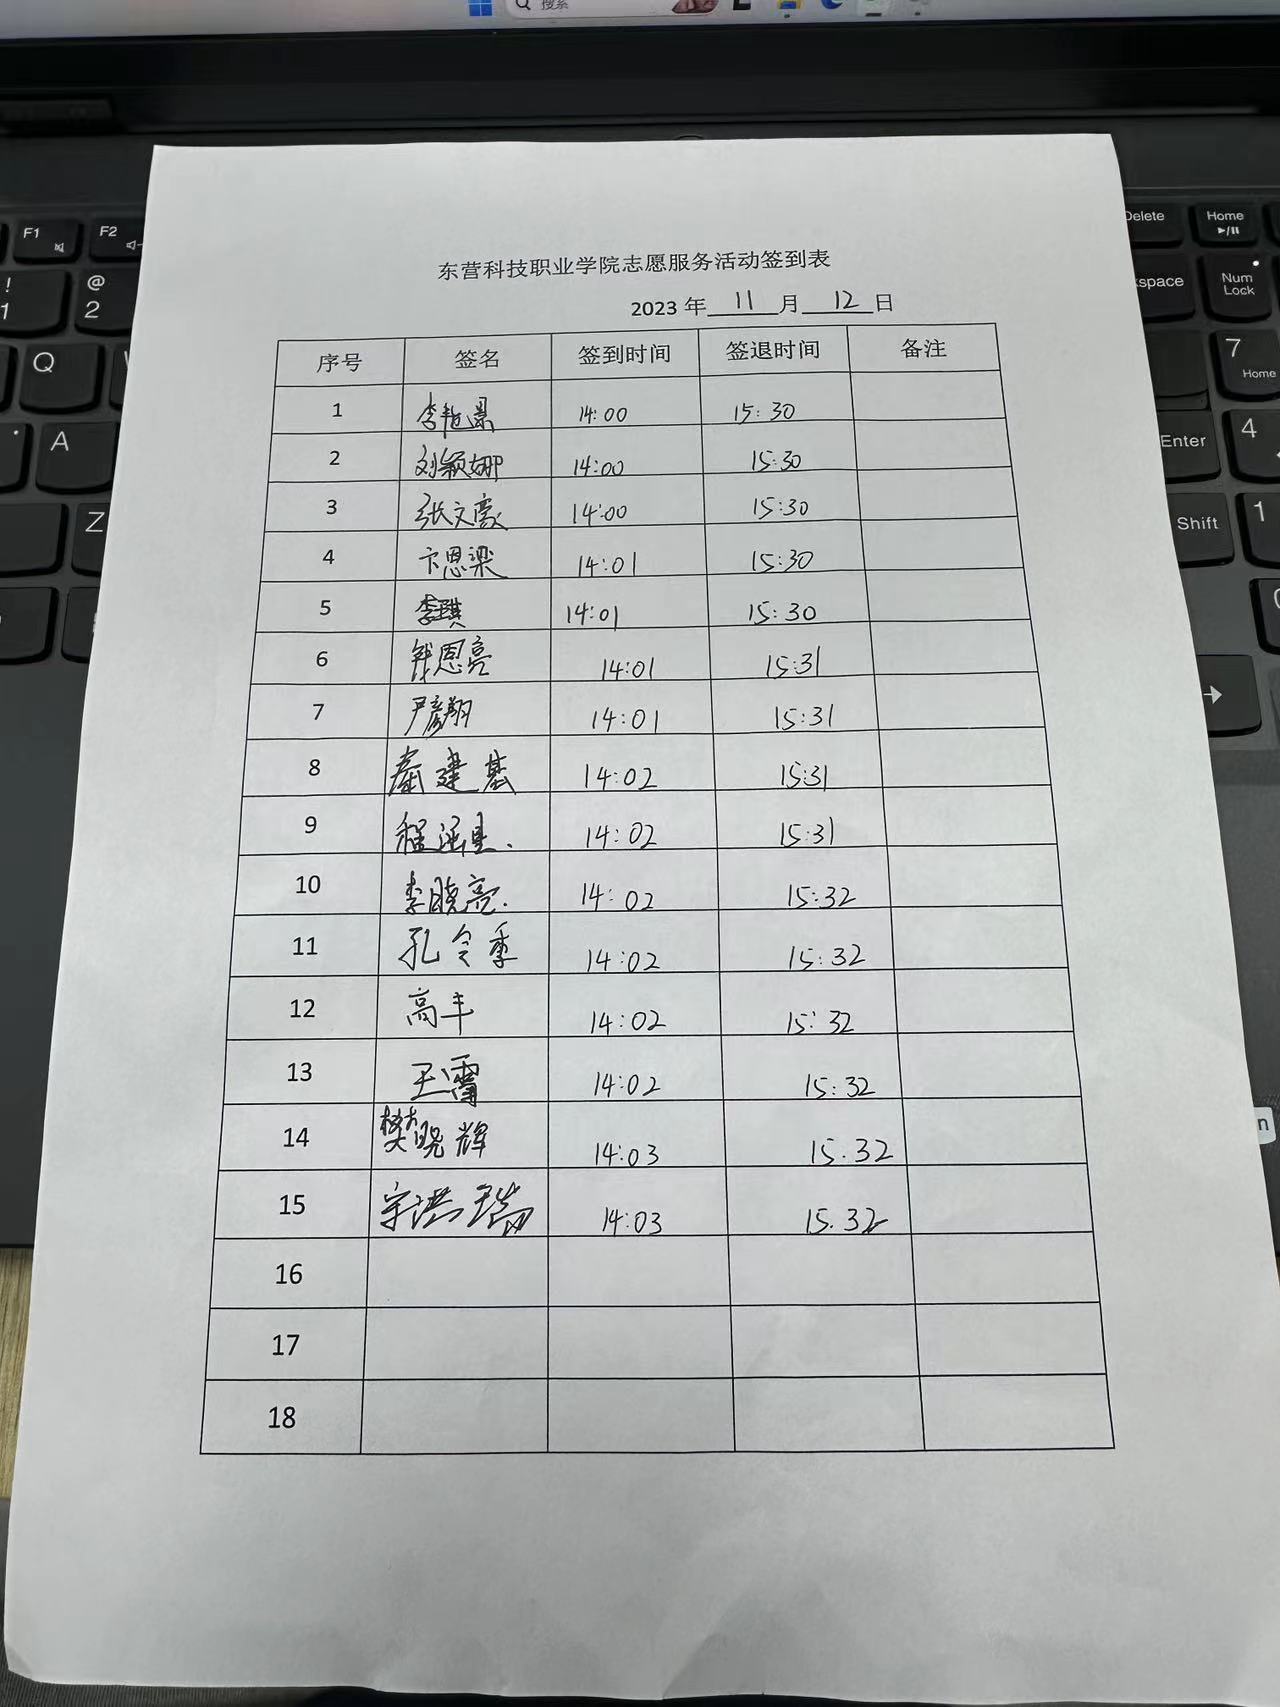 搜索
F1
F2
Delete
Home
! 1
@ 2
space
Num Lock
Q
7 Home
A
Enter
4
Z
Shift
1
n
东营科技职业学院志愿服务活动签到表
2023 年 11 月 12 日
序号 签名 签到时间 签退时间 备注
1 李艳景 14:00 15:30
2 刘颖娜 14:00 15:30
3 张文豪 14:00 15:30
4 卞恩梁 14:01 15:30
5 李琪 14:01 15:30
6 恩亮 14:01 15:31
7 严彦翔 14:01 15:31
8 秦建基 14:02 15:31
9 程 14:02 15:31
10 李晓亮. 14:02 15:32
11 孔令季 14:02 15:32
12 高丰 14:02 15:32
13 王雷 14:02 15:32
14 樊晓辉 14:03 15.32
15 宋洪瑞 14:03 15.32
16
17
18